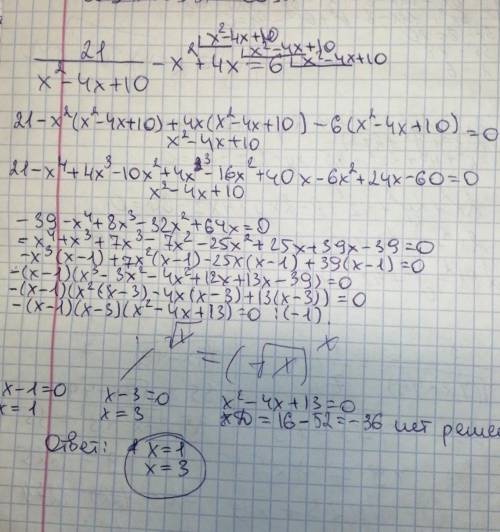 x²-4x+10 x²-4x+10 x²-4x+10
21/(x²-4x+10) - x² + 4x = 6
(21-x²(x²-4x+10)+4x(x²-4x+10)-6(x²-4x+10))/(x²-4x+10) = 0
(21-x⁴+4x³-10x²+4x³-16x²+40x-6x²+24x-60)/(x²-4x+10) = 0
-39-x⁴+8x³-32x²+64x=0
=x⁴+x³+7x³-7x²-25x²+25x+39x-39=0
-x³(x-1)+7x²(x-1)-25x(x-1)+39(x-1)=0
-(x-1)(x³-3x²-4x²+12x+13x-39)=0
-(x-1)(x²(x-3)-4x(x-3)+13(x-3))=0
-(x-1)(x-3)(x²-4x+13)=0 :(-1)
√x = (√x)ˣ
x-1=0 x-3=0 x²-4x+13=0
x=1 x=3 D=16-52=-36 нет реше
Ответ: x=1
x=3